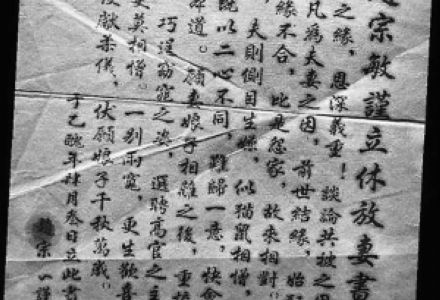 宗敏謹立休放妻書
之緣，恩深義重！談論共被之
凡為夫妻之因，前世結緣，始
緣不合，比是怨家，故來相對
夫則側目生嫌，似貓鼠相憎，
既以二心不同，難歸一意，快會
道。願妻娘子相離之後，重梳
巧逞窈窕之姿，選聘高官之主
更莫相憎。一別兩寬，更生歡喜
獻柔儀，伏願娘子千秋萬歲
于乙醜年肆月叁日立此書
趙宗一謹